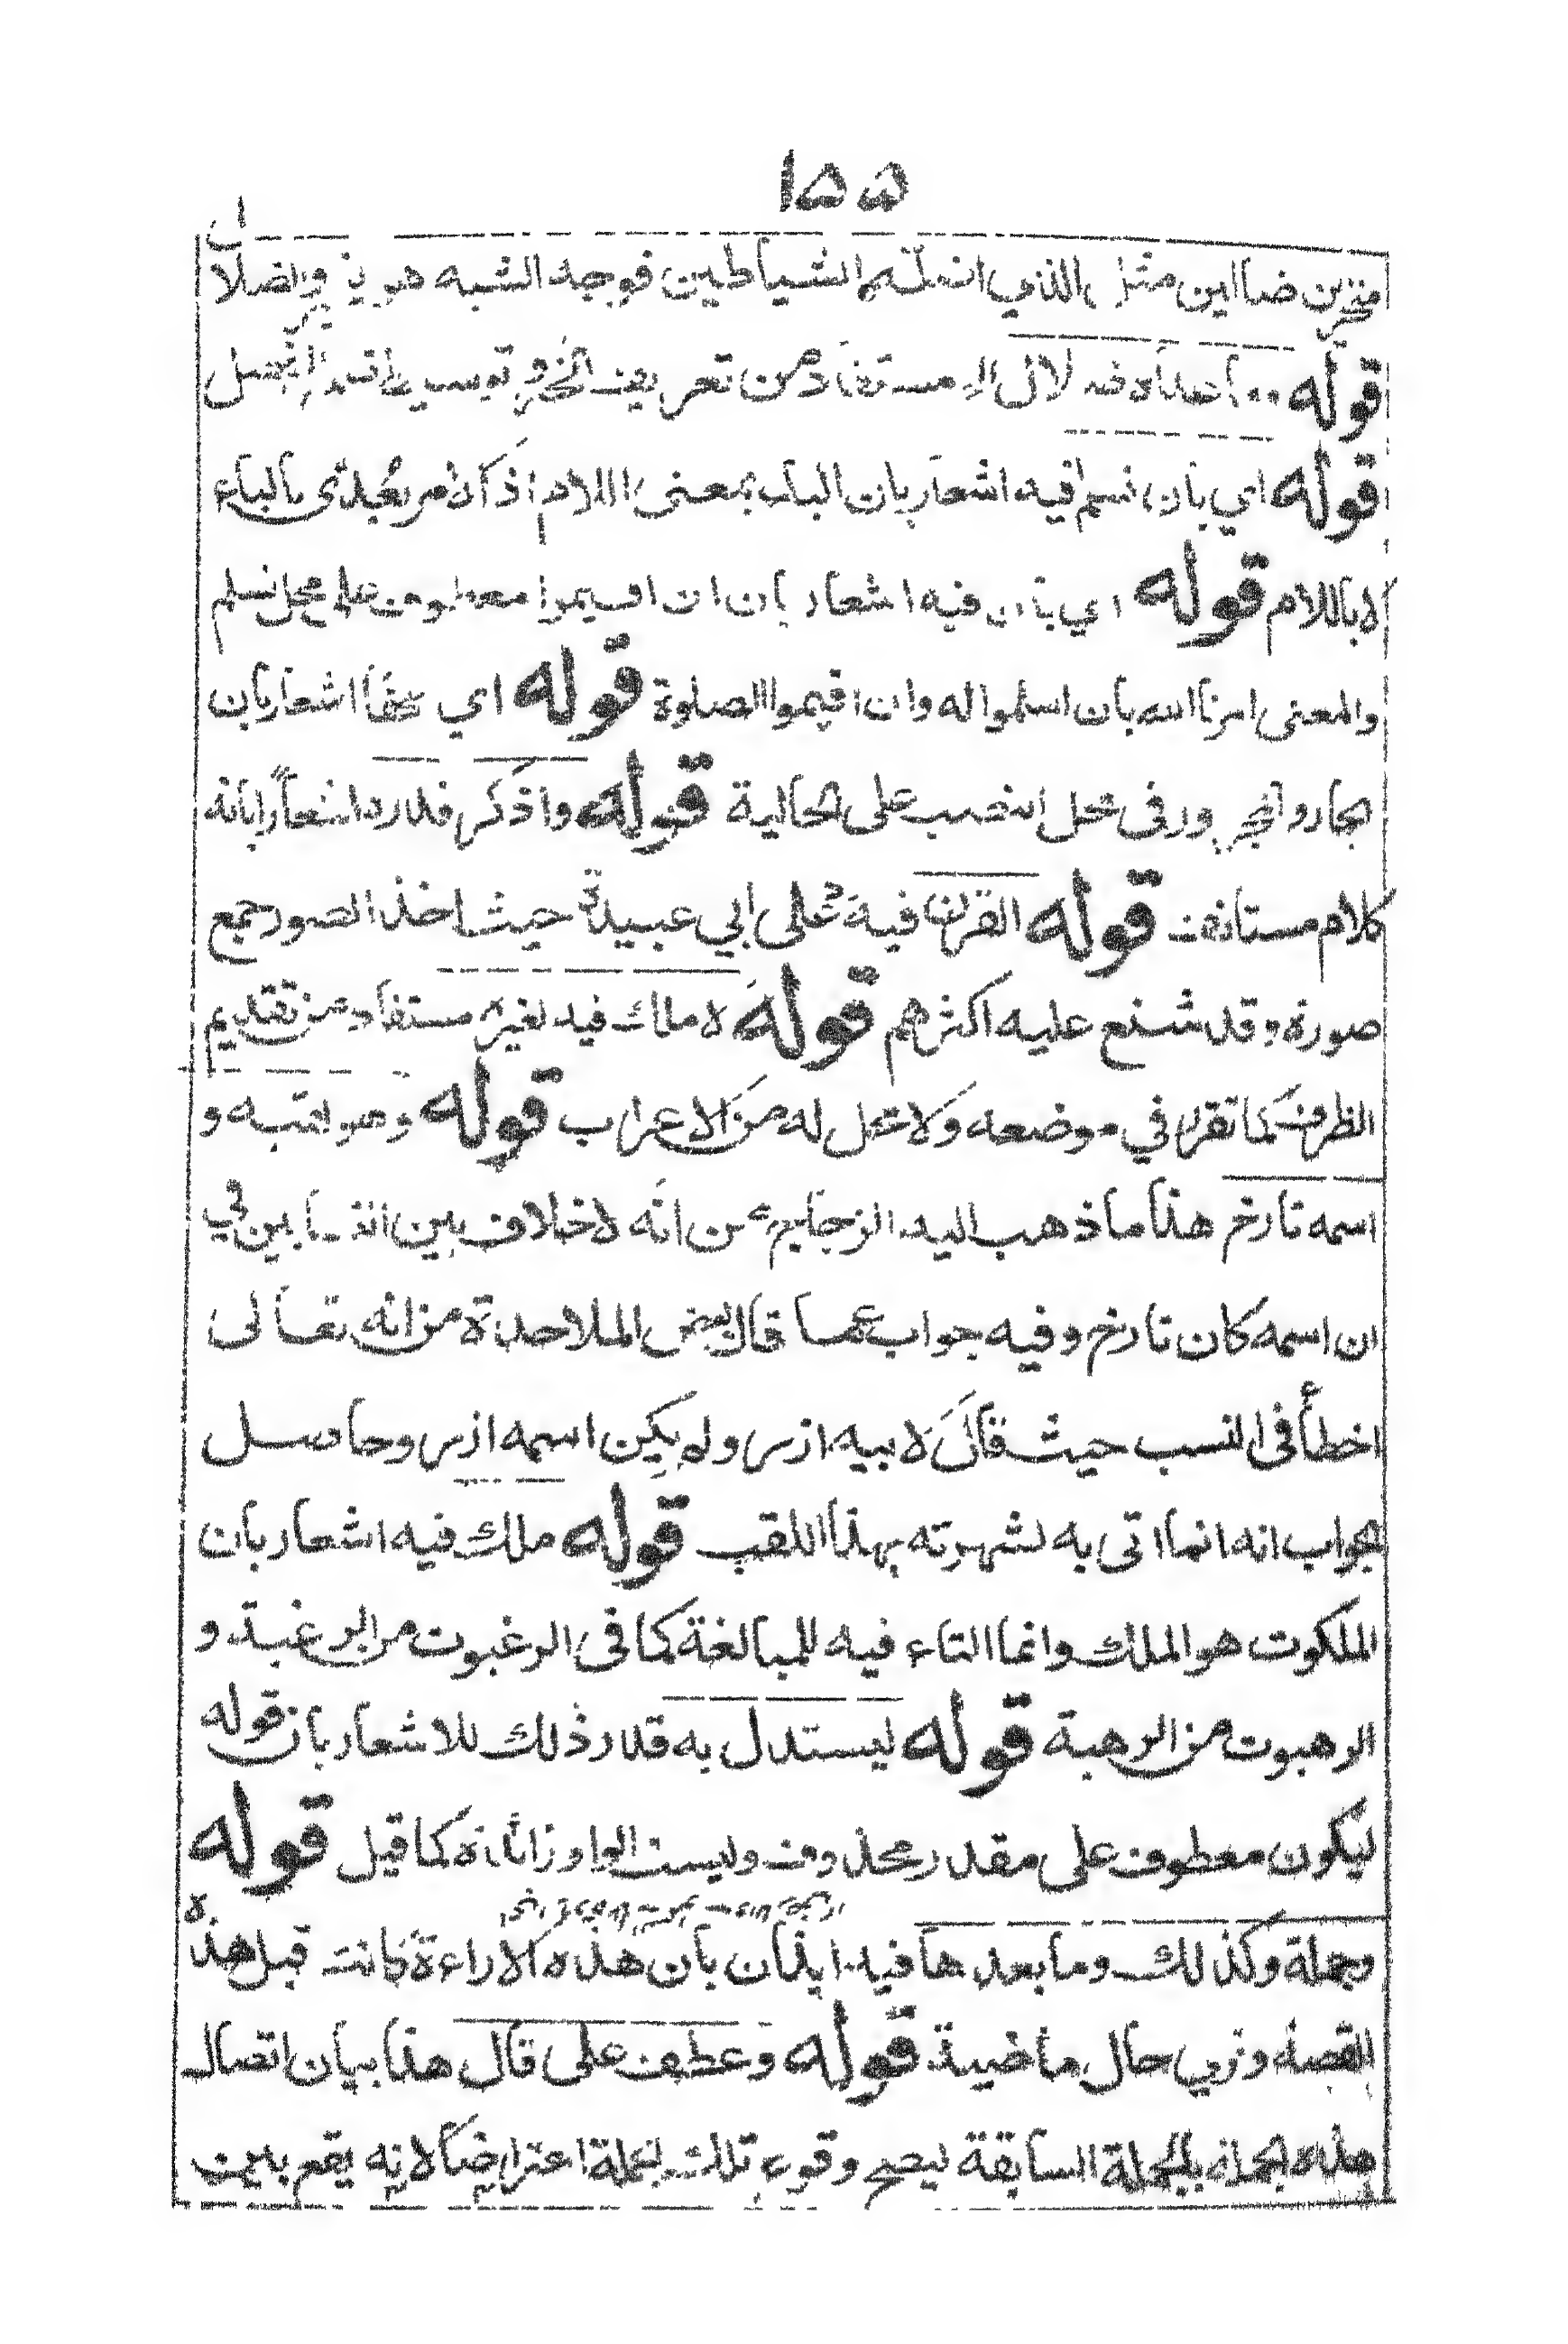 ١٥٥
متحيرين ضالين مثل الذي اضلتهم الشياطين فوجه الشبه هو
قوله وما عداه ضلال مستفاد من تعريف الخبر وتوسيط
قوله اي بان نسلم فيه اشعار بان الباء بمعنى اللام اذ كان امر يعدى بالباء
لا باللام قوله اي بان فيه اشعار بان ان اقيموا معطوف على محل نسلم
والمعنى امرنا الله بان اسلموا له وان اقيموا الصلوة قوله اي محقا اشعار بان
الجار والمجرور في محل النصب على الحالية قوله واذكر قدره اشعارًا بانه
كلام مستانف قوله القرن فيه على ابي عبيدة حيث اخذ الصور جمع
صورة وقد شنع عليه اكثرهم قوله لا ملك فيه لغيره مستفاد من تقديم
الظرف كما تقرر في موضعه ولا محل له من الاعراب قوله وهو لقبه و
اسمه تارخ هذا ما ذهب اليه الزجاج من انه لا خلاف بين النسابين في
ان اسمه كان تارخ وفيه جواب عما قال بعض الملاحدة من انه تعالى
اخطأ في النسب حيث قال لابيه ازر ولم يكن اسمه ازر وحاصل
الجواب انه انما اتى به لشهرته بهذا اللقب قوله ملك فيه اشعار بان
الملكوت هو الملك وانما التاء فيه للمبالغة كما في الرغبوت من الرغبة و
الرهبوت من الرهبة قوله ليستدل به قدر ذلك للاشعار بان قوله
ليكون معطوف على مقدر محذوف وليست الواو زائدة كما قيل قوله
وجملة وكذلك وما بعدها فيه ايذان بان هذه الاراءة كانت قبل هذه
القصة ونري حال ماضية قوله وعطف على قال هذا بيان اتصال
هذه الجملة بالجملة السابقة ليصح وقوع تلك الجملة اعتراضا لانه يقع بين